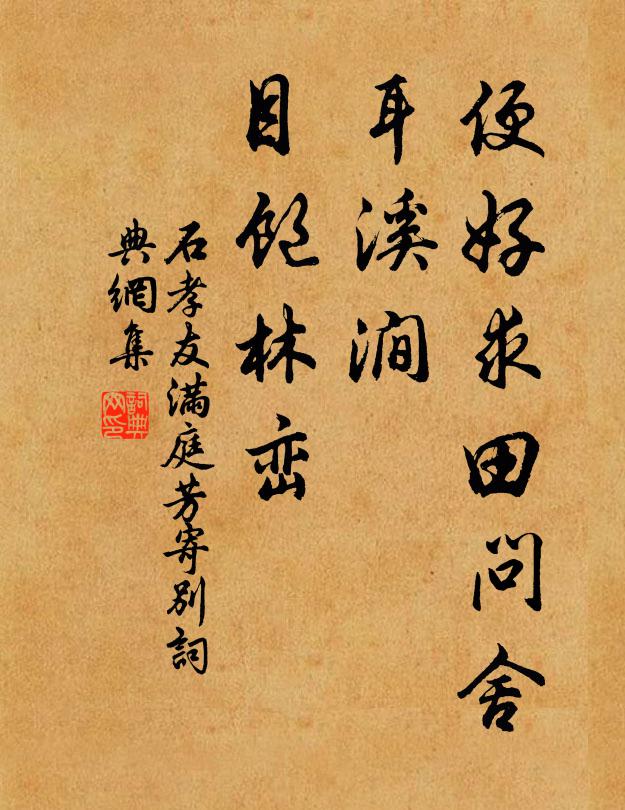 便好求田問舍
耳溪澗
目飽林峦
石孝友满庭芳寄別詞
典網集
詞典
网印